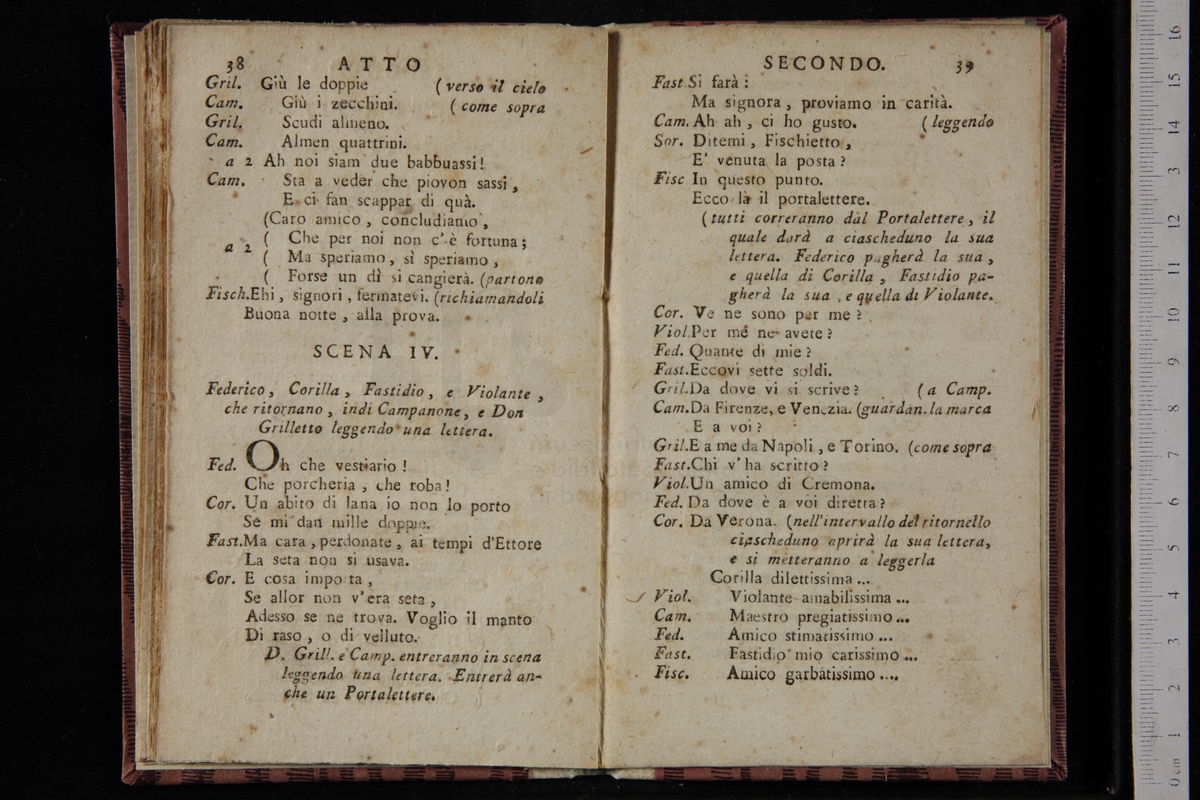 38 ATTO
Gril. Giù le doppie (verso il cielo
Cam. Giù i zecchini. (come sopra
Gril. Scudi almeno.
Cam. Almen quattrini.
a 2 Ah noi siam due babbuassi!
Cam. Sta a veder che piovon sassi,
E ci fan scappar di quà.
(Caro amico, concludiamo,
a 2 ( Che per noi non c'è fortuna;
( Ma speriamo, sì speriamo,
( Forse un dì si cangierà. (partono
Fisch. Ehi, signori, fermatevi. (richiamandoli
Buona notte, alla prova.
SCENA IV.
Federico, Corilla, Fastidio, e Violante,
che ritornano, indi Campanone, e Don
Grilletto leggendo una lettera.
Fed. Oh che vestiario!
Che porcheria, che roba!
Cor. Un abito di lana io non lo porto
Se mi dan mille doppie.
Fast. Ma cara, perdonate, ai tempi d'Ettore
La seta non si usava.
Cor. E cosa importa,
Se allor non v'era seta,
Adesso se ne trova. Voglio il manto
Di raso, o di velluto.
D. Grill. e Camp. entreranno in scena
leggendo una lettera. Entrerà an-
che un Portalettere.
SECONDO. 39
Fast. Si farà:
Ma signora, proviamo in carità.
Cam. Ah ah, ci ho gusto. (leggendo
Sor. Ditemi, Fischietto,
E' venuta la posta?
Fisc In questo punto.
Ecco là il portalettere.
(tutti correranno dal Portalettere, il
quale darà a ciascheduno la sua
lettera. Federico pagherà la sua,
e quella di Corilla, Fastidio pa-
gherà la sua, e quella di Violante.
Cor. Ve ne sono per me?
Viol. Per me ne avete?
Fed. Quante di mie?
Fast. Eccovi sette soldi.
Gril. Da dove vi si scrive? (a Camp.
Cam. Da Firenze, e Venezia. (guardan. la marca
E a voi?
Gril. E a me da Napoli, e Torino. (come sopra
Fast. Chi v'ha scritto?
Viol. Un amico di Cremona.
Fed. Da dove è a voi diretta?
Cor. Da Verona. (nell'intervallo del ritornello
ciascheduno aprirà la sua lettera,
e si metteranno a leggerla
Corilla dilettissima...
Viol. Violante amabilissima...
Cam. Maestro pregiatissimo...
Fed. Amico stimatissimo...
Fast. Fastidio mio carissimo...
Fisc. Amico garbatissimo....